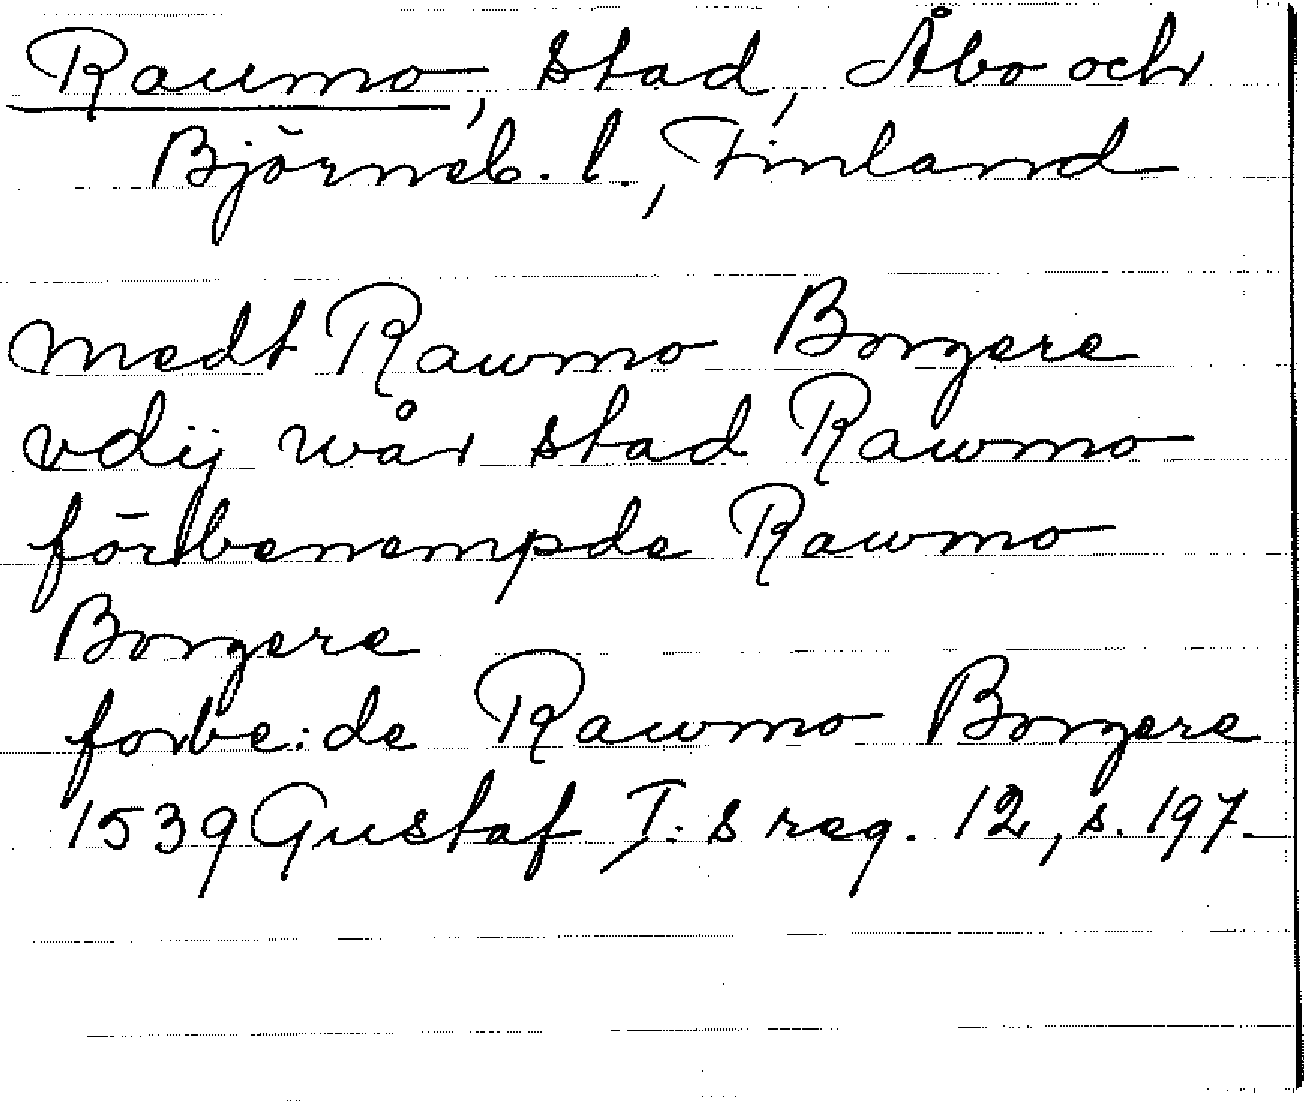 Raumo, stad, Åbo och
Björneb. l., Finland
medt Rawmo Borgere
vdij wår stad Rawmo
förbenempde Rawmo
Borgere
forbe:de Rawmo Borgere
1539 Gustaf I:s reg. 12, s. 197.